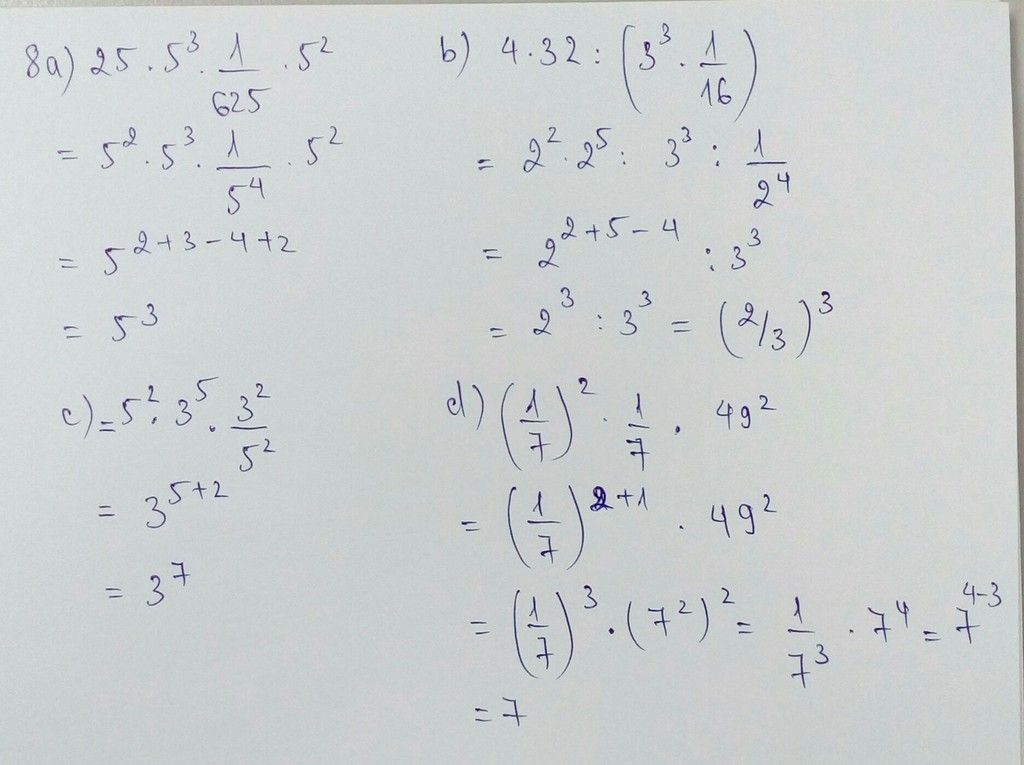 8a) 25 . 5³ . 1/625 . 5²
= 5² . 5³ . 1/5⁴ . 5²
= 5^(2+3-4+2)
= 5³
b) 4 . 32 : (3³ . 1/16)
= 2² . 2⁵ : 3³ : 1/2⁴
= 2^(2+5-4) : 3³
= 2³ : 3³ = (2/3)³
c) = 5² . 3⁵ . 3²/5²
= 3^(5+2)
= 3⁷
d) (1/7)² . 1/7 . 49²
= (1/7)^(2+1) . 49²
= (1/7)³ . (7²)² = 1/7³ . 7⁴ = 7^(4-3)
= 7